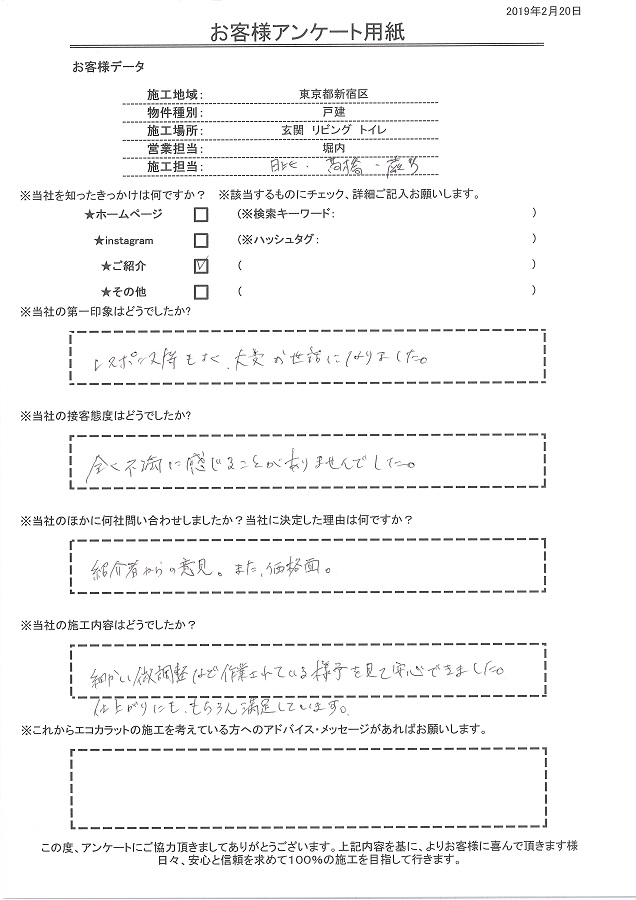 2019年2月20日
お客様アンケート用紙
お客様データ
施工地域： 東京都新宿区
物件種別： 戸建
施工場所： 玄関 リビング トイレ
営業担当： 堀内
施工担当： ・高橋・
※当社を知ったきっかけは何ですか？ ※該当するものにチェック、詳細ご記入お願いします。
★ホームページ □ (※検索キーワード： )
★instagram □ (※ハッシュタグ： )
★ご紹介 ☑ ( )
★その他 □ ( )
※当社の第一印象はどうでしたか?
レスポンス等もよく、大変お世話になりました。
※当社の接客態度はどうでしたか?
全く不満に感じることがありませんでした。
※当社のほかに何社問い合わせしましたか？当社に決定した理由は何ですか？
紹介者からの意見。また、価格面。
※当社の施工内容はどうでしたか？
細かい微調整など作業されている様子を見て安心できました。
仕上がりにも、もちろん満足しています。
※これからエコカラットの施工を考えている方へのアドバイス・メッセージがあればお願いします。
この度、アンケートにご協力頂きましてありがとうございます。上記内容を基に、よりお客様に喜んで頂きます様
日々、安心と信頼を求めて100%の施工を目指して行きます。